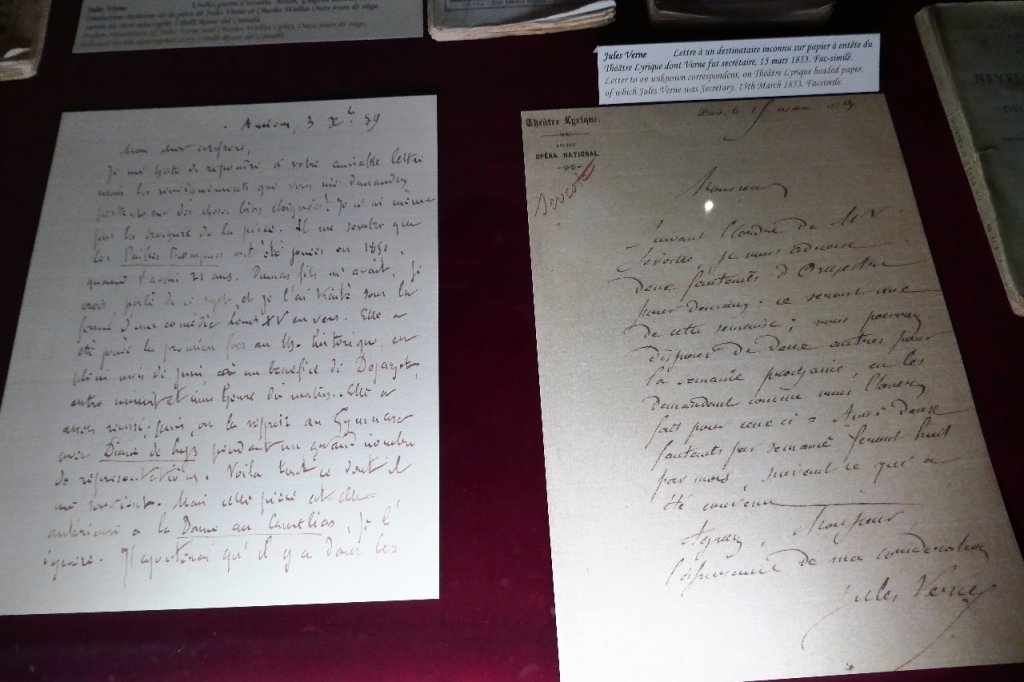 Jules Verne
Jules Verne Lettre à un destinataire inconnu sur papier à entête du
Théâtre Lyrique dont Verne fut secrétaire, 15 mars 1853. Fac-similé.
Letter to an unknown correspondent, on Théâtre Lyrique headed paper,
of which Jules Verne was Secretary, 15th March 1853. Facsimile.
Amiens, 3 Xbre 89
Mon cher confrère,
Je me hâte de répondre à votre aimable lettre
mais les renseignements que vous me demandez
portent sur des choses bien éloignées! Je n'ai même
pas la brochure de la pièce. Il me semble que
les Pailles Rompues ont été jouées en 1850,
quand j'avais 21 ans. Dumas fils m'avait, je
crois, parlé de ce sujet, et je l'ai traité sous la
forme d'une comédie Louis XV en vers. Elle a
été jouée la première fois au Th. historique, en
plein mois de juin, à un bénéfice de Dejazet,
entre minuit et une heure du matin.. Elle a
assez réussi; puis, on l'a reprise au Gymnase
avec Diane de Lys pendant un grand nombre
de représentations. Voilà tout ce dont il
me souvient. Mais cette pièce est-elle
antérieure à la Dame au Camélias, je l'
ignore. J'ajouterai qu'il y a dans les
Théâtre Lyrique.
OPÉRA NATIONAL
Paris, le 15 mars
Monsieur
Suivant l'ordre de Mr
Seveste, je vous adresse
deux fauteuils d'Orchestre
pour demain; ce seront ceux
de cette semaine; vous pourrez
disposer de deux autres pour
la semaine prochaine, en les
demandant comme vous l'avez
fait pour ceux-ci. Ainsi deux
fauteuils par semaine feront huit
par mois, suivant ce qui a
été convenu
Agréez, Monsieur,
l'assurance de ma considération
Jules Verne